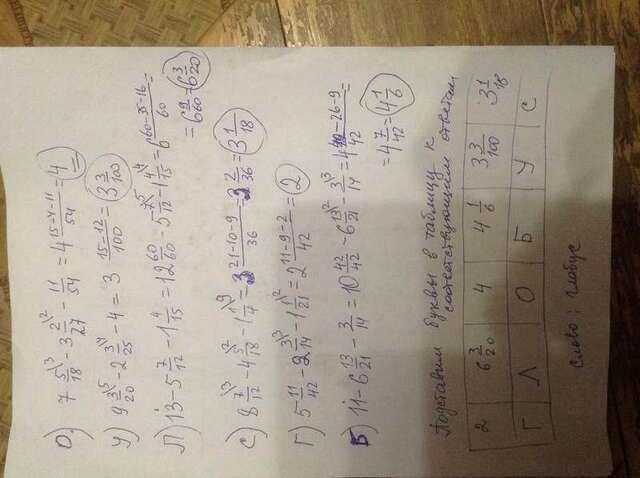 О) 7 5/18\3 − 3 2/27\2 − 11/54 = 4 15−4−11/54 = 4
У) 9 3/20\5 − 2 3/25\4 − 4 = 3 15−12/100 = 3 3/100
Л) 13 − 5 7/12 − 1 4/15 = 12 60/60 − 5 7/12\5 − 1 4/15\4 = 6 60−35−16/60 =
= 6 9/60 = 6 3/20
С) 8 7/12\3 − 4 5/18\2 − 1 1/4\9 = 3 21−10−9/36 = 3 2/36 = 3 1/18
Г) 5 11/42 − 2 3/14\3 − 1 1/21\2 = 2 11−9−2/42 = 2
Б) 11 − 6 13/21 − 3/14 = 10 42/42 − 6 13/21\2 − 3/14\3 = 4 42−26−9/42 =
= 4 7/42 = 4 1/6
Подставим буквы в таблицу к
соответствующим ответам
2 6 3/20 4 4 1/6 3 3/100 3 1/18
Г Л О Б У С
Слово: глобус